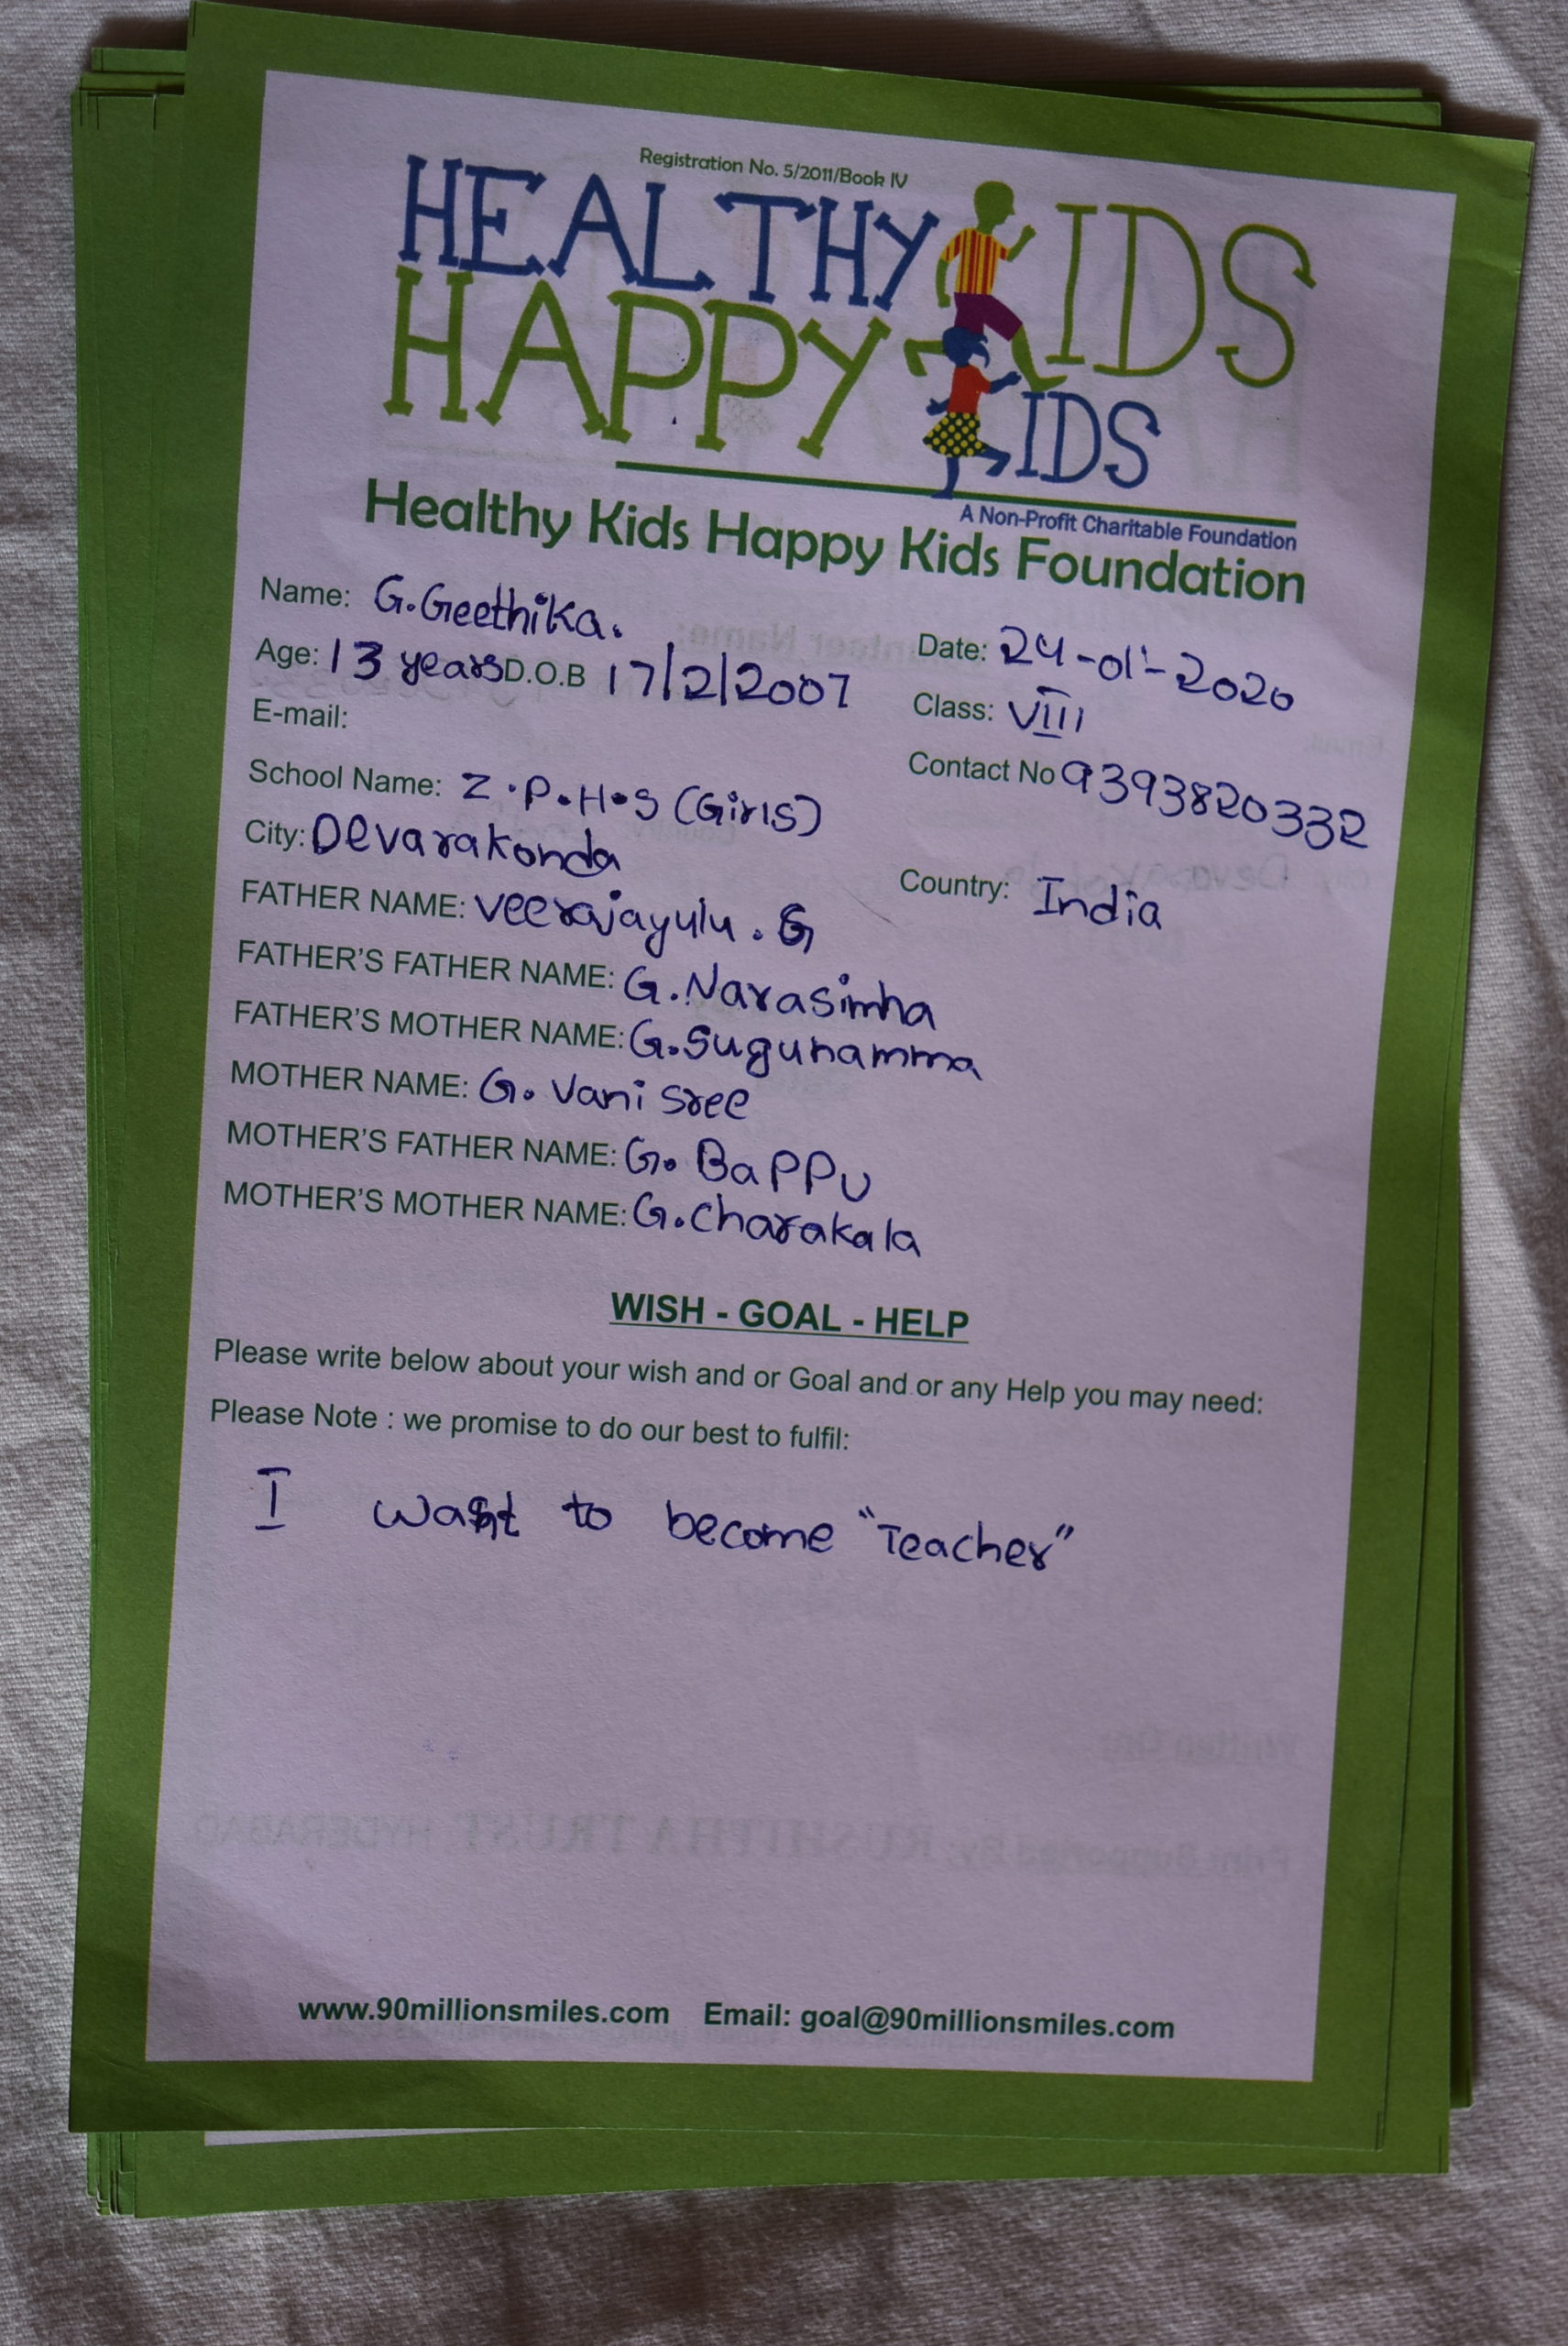 Registration No. 5/2011/Book IV
HEALTHY KIDS
HAPPY KIDS
A Non-Profit Charitable Foundation
Healthy Kids Happy Kids Foundation
Name: G.Geethika.
Date: 24-01-2020
Age: 13 years D.O.B 17/2/2007
Class: VIII
E-mail:
Contact No 9393820332
School Name: Z.P.H.S (Girls)
City: Devarakonda
Country: India
FATHER NAME: Veerajayulu . G
FATHER'S FATHER NAME: G.Narasimha
FATHER'S MOTHER NAME: G.Sugunamma
MOTHER NAME: G. Vani Sree
MOTHER'S FATHER NAME: G. BaPPU
MOTHER'S MOTHER NAME: G.Charakala
WISH - GOAL - HELP
Please write below about your wish and or Goal and or any Help you may need:
Please Note : we promise to do our best to fulfil:
I want to become "Teacher"
Written On:
Print Supported By: RUSHITHA TRUST HYDERABAD
www.90millionsmiles.com Email: goal@90millionsmiles.com